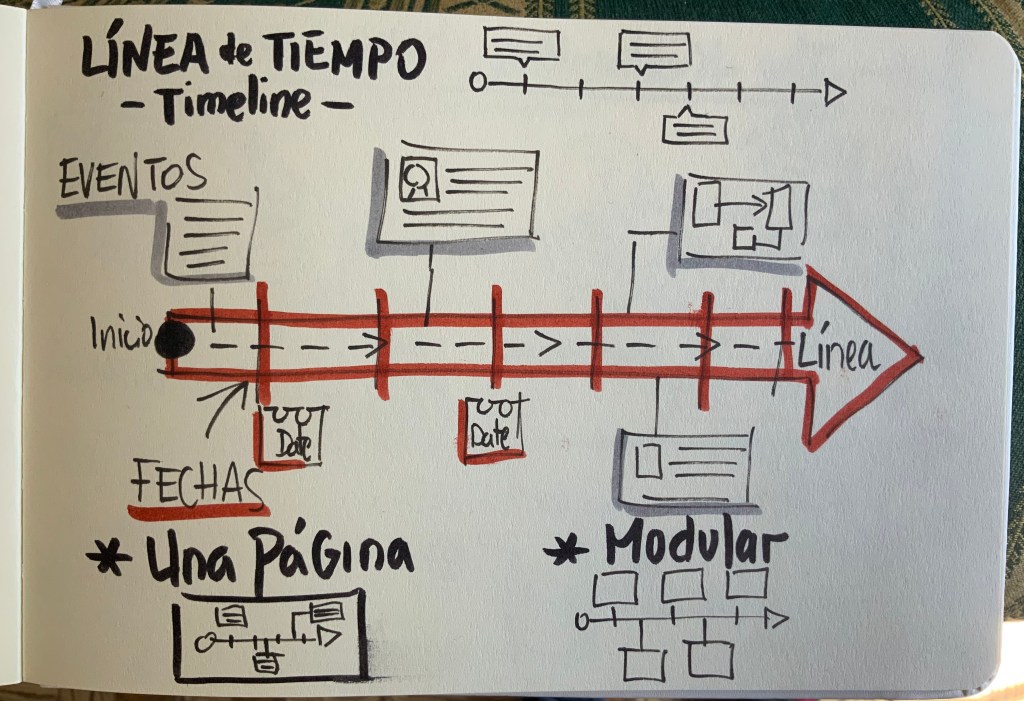 LÍNEA de TIEMPO
- Timeline -
EVENTOS
Inicio
Línea
Date
Date
FECHAS
* Una PáGina
* Modular